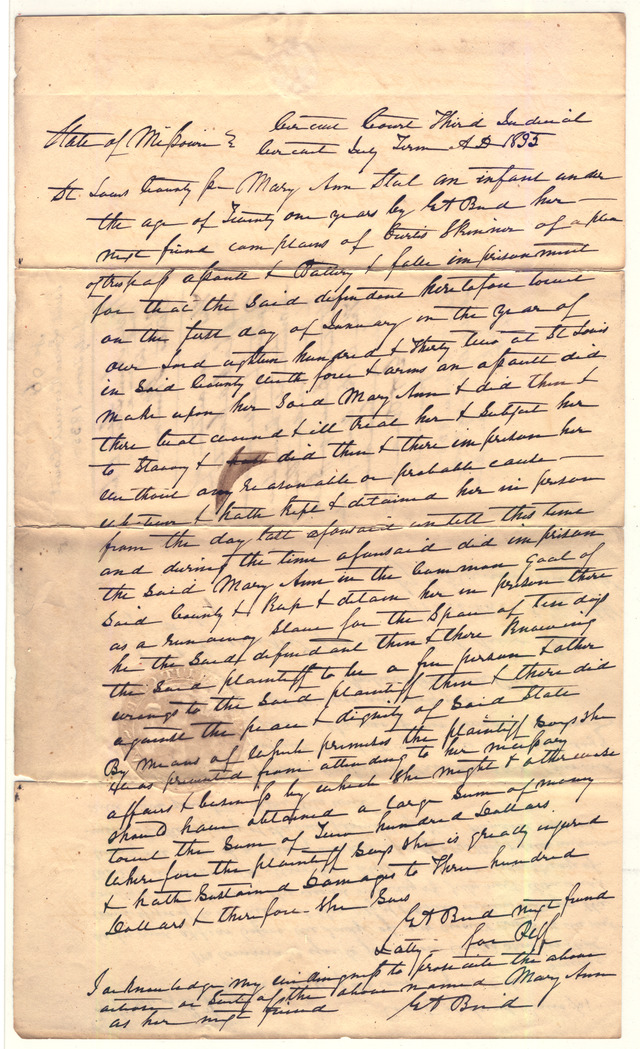 Circuit Court Third Judicial
State of Missouri } Circuit July Term AD 1835
St. Louis County ss Mary Ann Steel an infant under
the age of Twenty one years by G A Bird her
next friend complains of Curtis Skinner of a plea
of trespass assault & Battery & false imprisonment
for that the said defendant heretofore towit
on the first day of January in the year of
our Lord eighteen hundred & thirty two at St Louis
in said County with force & arms an assault did
make upon her Said Mary Ann & did then &
there beat wound & ill treat her & Subject her
to Slavery & did then & there imprison her
without any reasonable or probable cause
& hath kept & detained her in prison
from the day last aforesaid untill this time
and during the time aforesaid did imprison
the said Mary Ann in the Common Goal of
said County & kept & detain her in prison there
as a runaway Slave for the Space of ten days
he the said defendant then & there Knowing
the Said plaintiff to be a free person & other
wrongs to the Said plaintiff then & there did
against the peace & dignity of Said State
By means of which premises the plaintiff Says She
was prevented from attending to her necessary
affairs & business by which She might & otherwise
should have obtained a large Sum of money
towit the Sum of Two hundred Dollars.
Wherefore the plaintiff Says She is greatly injured
& hath Sustained Damages to Three hundred
Dollars & therefore She Sues
G A Bird next friend
for Plff
I acknowledge my willingness to prosecute the above
action or Suit of the above named Mary Ann
as her next friend G A Bird